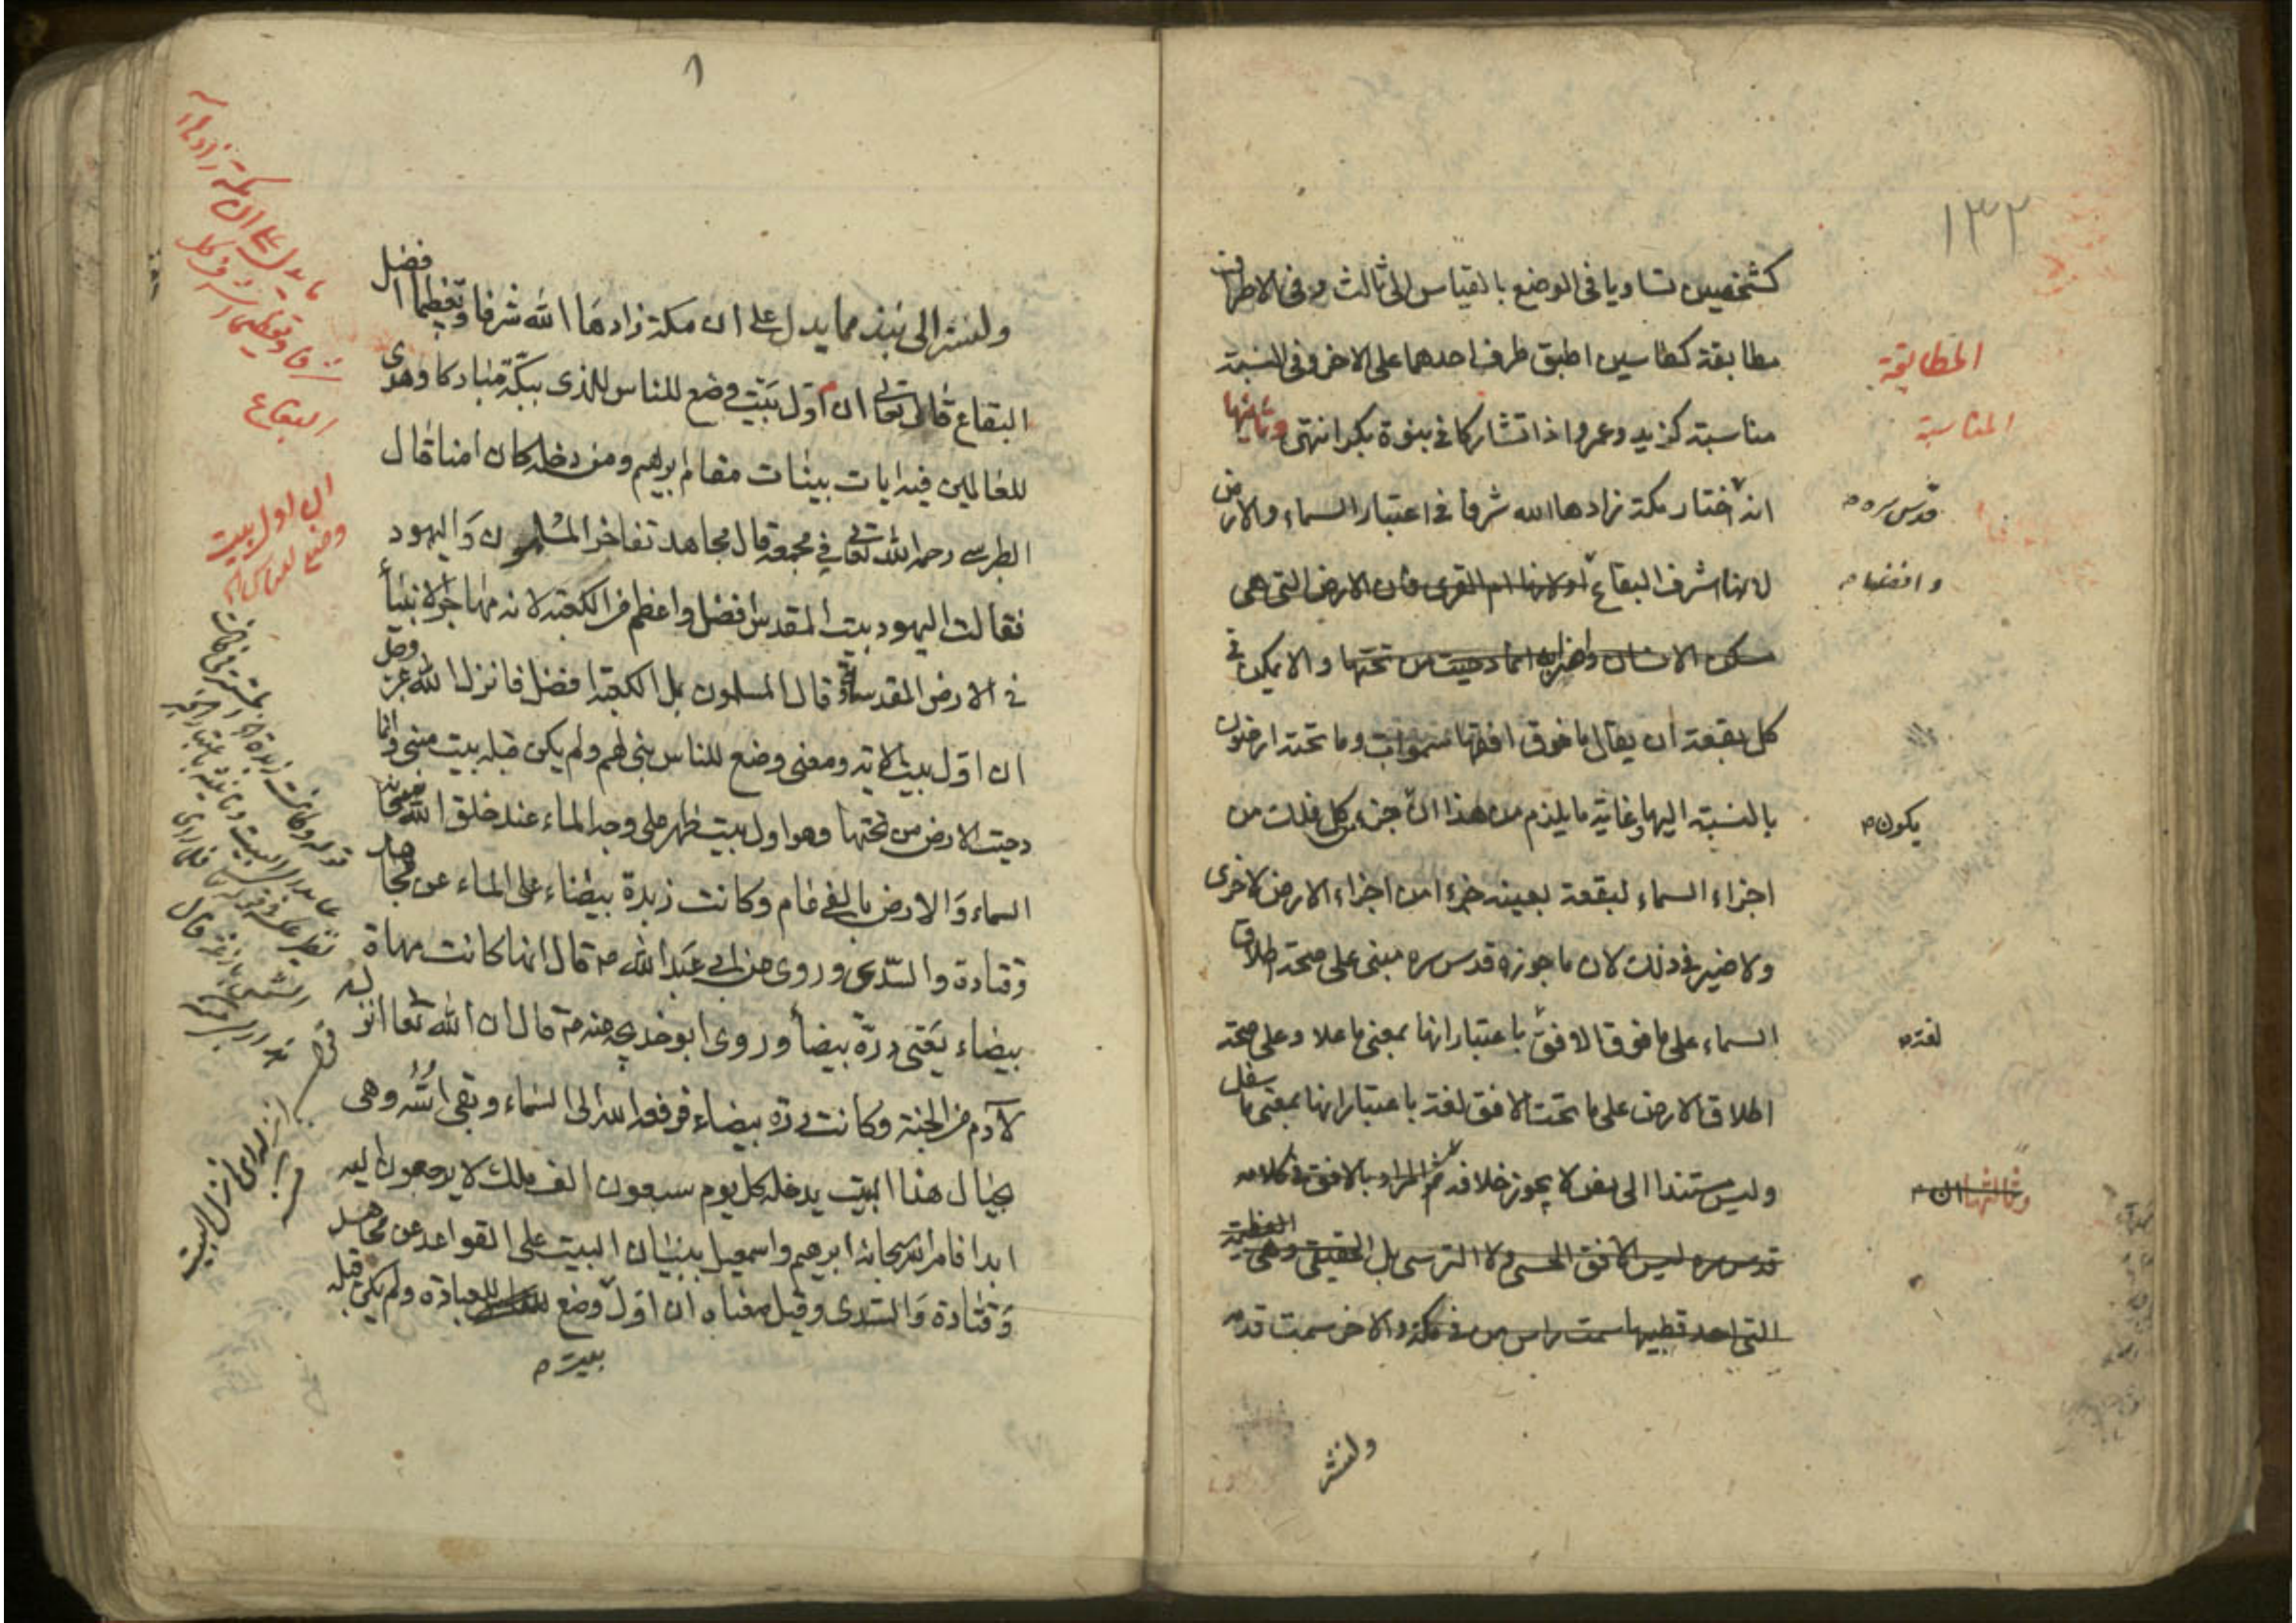 ١٣٢
كشخصين تساويا فى الوضع بالقياس الى ثالث وفى الاطراف
مطابقة كطاسين اطبق طرف احدهما على الاخر وفى النسبة
مناسبة كزيد وعمرو اذا تشاركا فى بنوة بكر انتهى وثانيها
انه اختار مكة زادها الله شرفا فى اعتبار السماء والارض
لانها اشرف البقاع اولانها ام القرى فان الارض التى هى
مسكن الانسان واضرابه انما دحيت من تحتها والا يمكن فى
كل بقعة ان يقال ما فوق افقها سموات وما تحته ارضون
بالنسبة اليها وغاية ما يلزم من هذا ان جزء كل فلك من
اجزاء السماء لبقعة بعينه جزءا من اجزاء الارض لاخرى
ولا ضير فى ذلك لان ما جوزه قدس سره مبنى على صحة اطلاق
السماء على ما فوق الافق باعتبار انها بمعنى ما علا وعلى صحة
اطلاق الارض على ما تحت الافق لغة باعتبار انها بمعنى ما سفل
وليس مستندا الى نص لا يجوز خلافه ثم المراد بالافق فى كلامه
قدس سره ليس الافق الحسى ولا الترسى بل الحقيقى وهى العظيمة
التى احد قطبيها سمت راس من فى مكة والاخر سمت قدمه
ولنشر
المطابقة
المناسبة
قدس سره
وافضلها
يكون
لغة
وثالثها ان
ولنشر الى نبذ مما يدل على ان مكة زادها الله شرفا وتعظيما افضل
البقاع قال تعالى ان اول بيت وضع للناس للذى ببكة مباركا وهدى
للعالمين فيه ايات بينات مقام ابرهيم ومن دخله كان امنا قال
الطبرسى رحمه الله تعالى فى مجمعه قال مجاهد تفاخر المسلمون واليهود
فقالت اليهود بيت المقدس افضل واعظم من الكعبة لانه مهاجر الانبياء
فى الارض المقدسة وقال المسلمون بل الكعبة افضل فانزل الله عز وجل
ان اول بيت الاية ومعنى وضع للناس بنى لهم ولم يكن قبله بيت مبنى وانما
دحيت الارض من تحتها وهو اول بيت ظهر على وجه الماء عند خلق الله سبحانه
السماء والارض بالفى عام وكانت زبدة بيضاء على الماء عن مجاهد
وقتادة والسدى وروى عن ابى عبد الله قال انها كانت مهاة
بيضاء يعنى درة بيضاء وروى ابو خديجة عنه قال ان الله تعالى انزله
لآدم من الجنة وكانت درة بيضاء فرفعه الله الى السماء وبقى اسه وهى
بحيال هذا البيت يدخله كل يوم سبعون الف ملك لا يرجعون اليه
ابدا فامر الله سبحانه ابرهيم واسمعيل ببنيان البيت على القواعد عن مجاهد
وقتادة والسدى وقيل معناه ان اول وضع للعبادة ولم يكن قبله
بيت
ما يدل على ان مكة زادها الله
شرفا وتعظيما اشرف كل
البقاع
ان اول بيت
وضع للناس
انزله اى انزل البيت